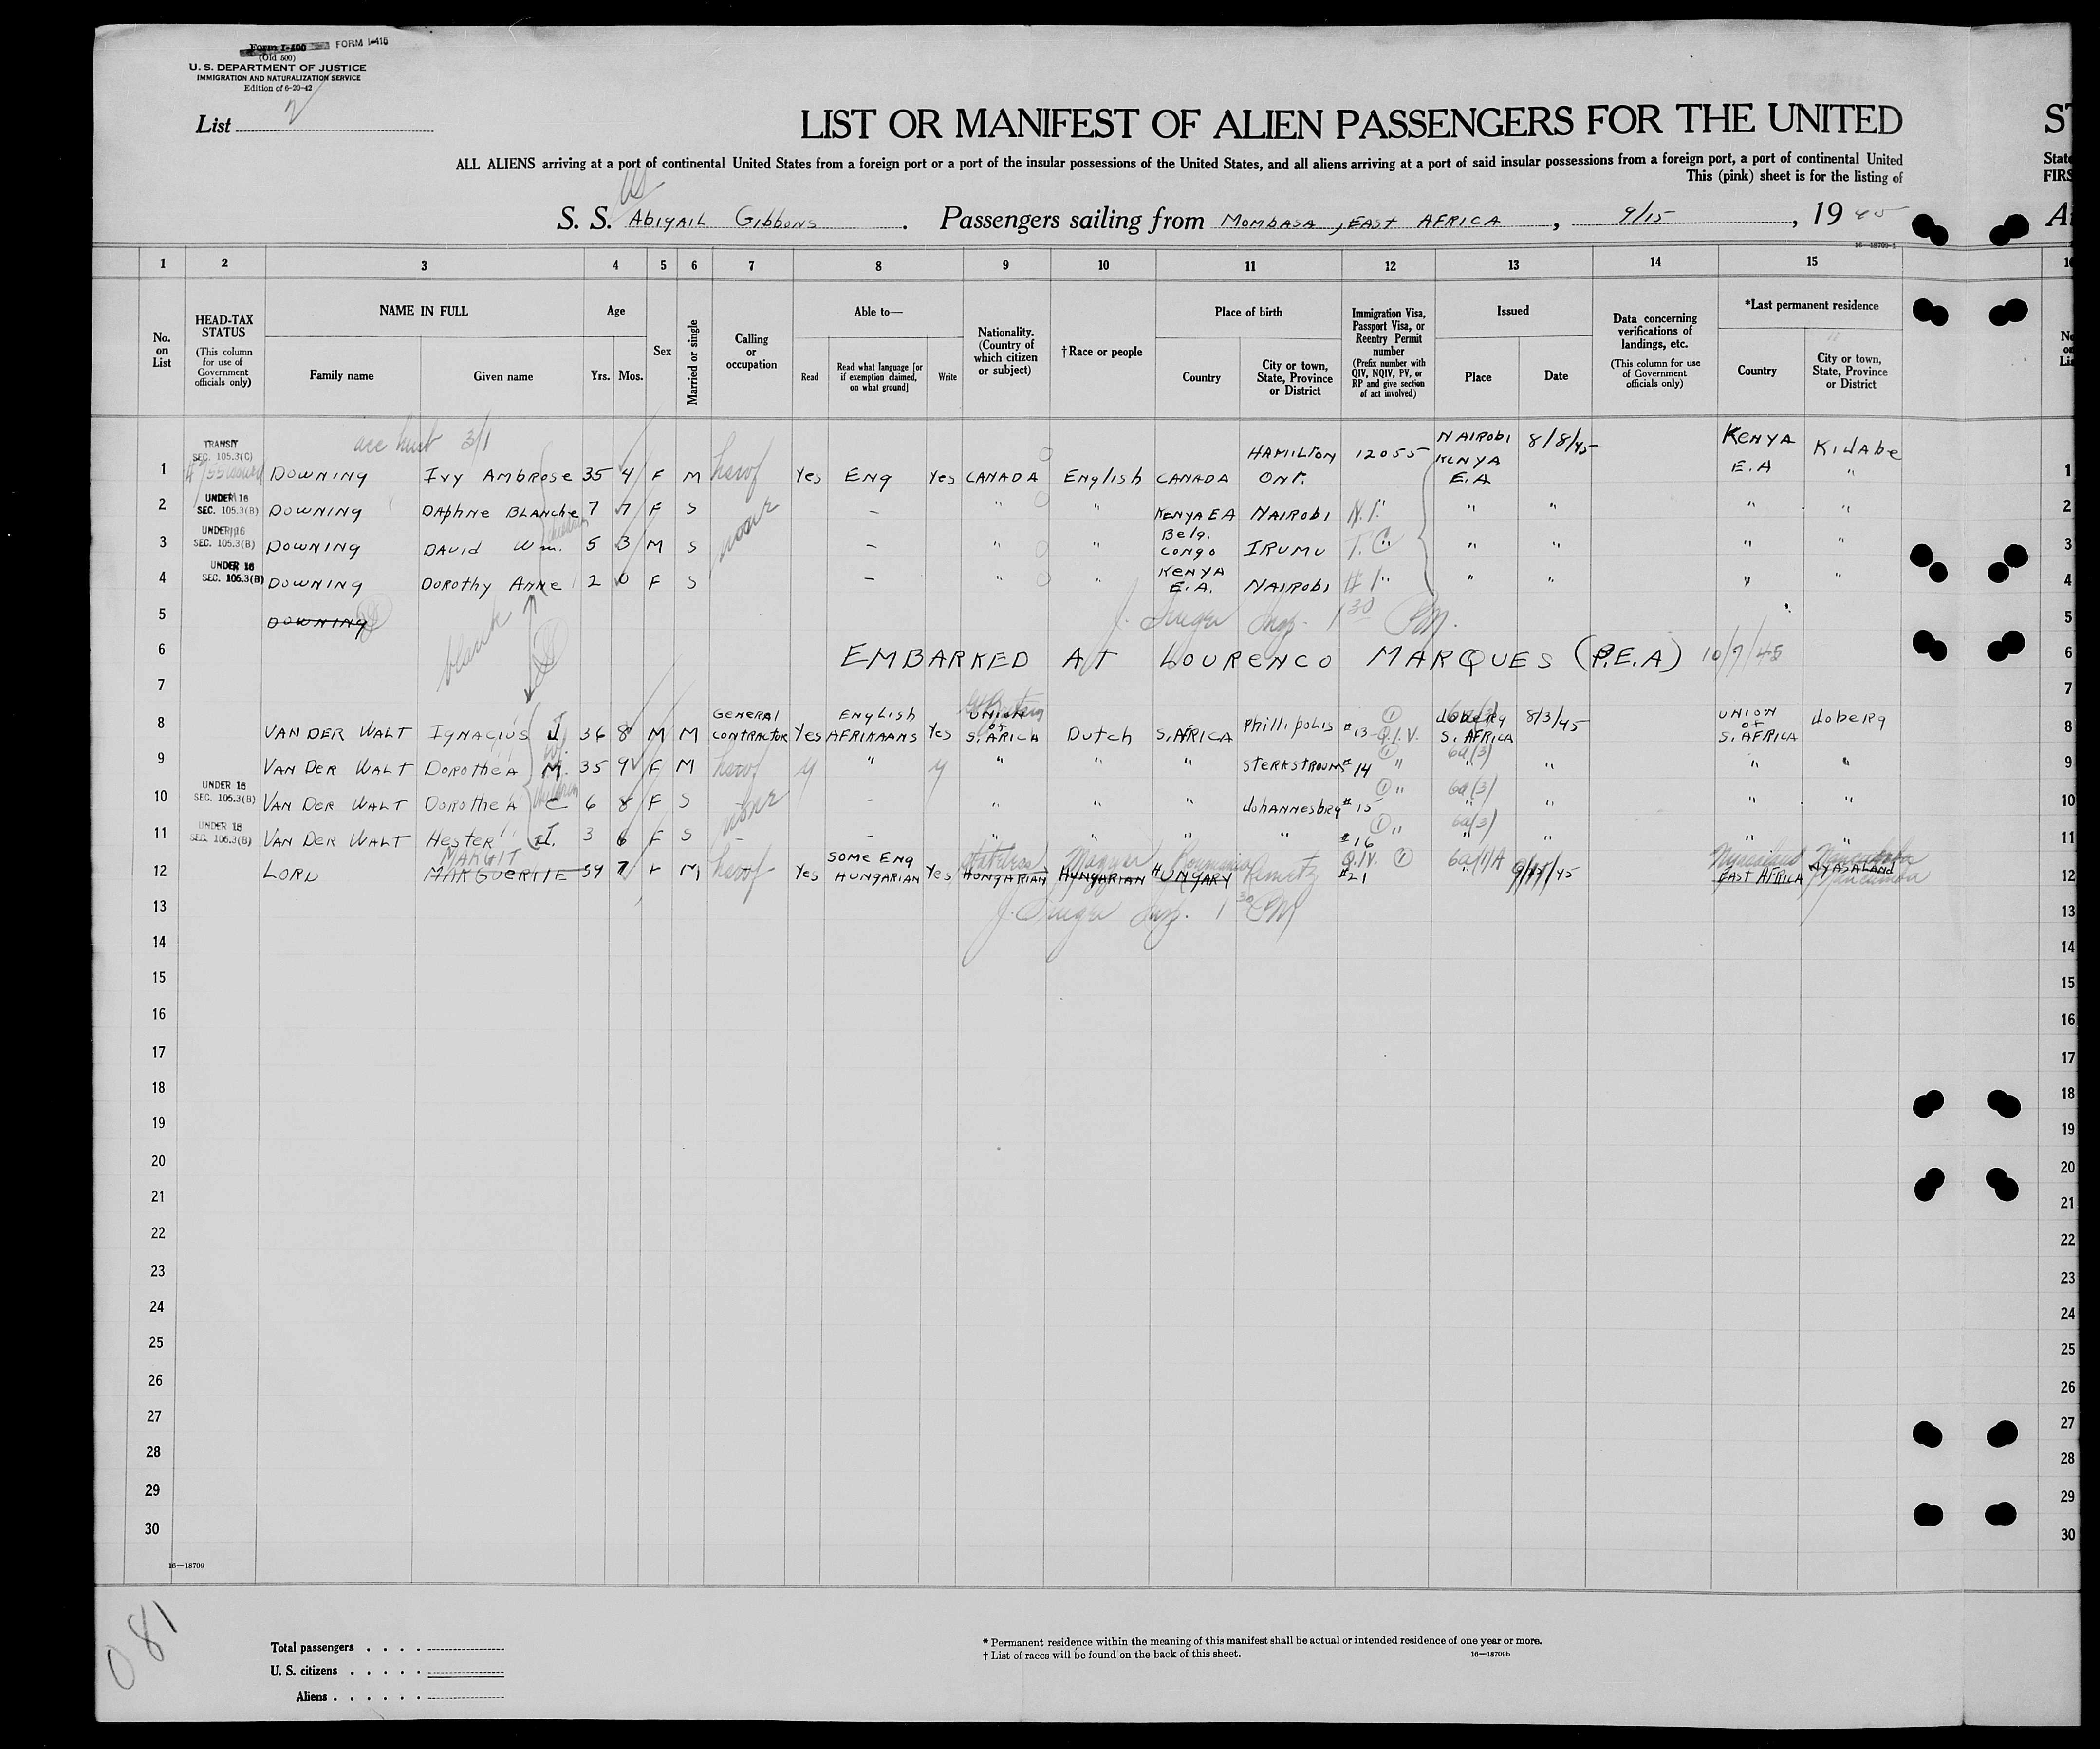 Form I-400 FORM I-415
(Old 500)
U. S. DEPARTMENT OF JUSTICE
IMMIGRATION AND NATURALIZATION SERVICE
Edition of 6-20-42
List 2
LIST OR MANIFEST OF ALIEN PASSENGERS FOR THE UNITED
ST
ALL ALIENS arriving at a port of continental United States from a foreign port or a port of the insular possessions of the United States, and all aliens arriving at a port of said insular possessions from a foreign port, a port of continental United
State
This (pink) sheet is for the listing of
FIRS
S. S. ABIGAIL GIBBONS . Passengers sailing from MOMBASA, EAST AFRICA , 9/15 , 19 45
16—18709-1
1 2 3 4 5 6 7 8 9 10 11 12 13 14 15
No. on List
HEAD-TAX STATUS (This column for use of Government officials only)
NAME IN FULL
Family name Given name
Age
Yrs. Mos.
Sex
Married or single
Calling or occupation
Able to—
Read Read what language [or if exemption claimed, on what ground] Write
Nationality. (Country of which citizen or subject)
†Race or people
Place of birth
Country City or town, State, Province or District
Immigration Visa, Passport Visa, or Reentry Permit number (Prefix number with QIV, NQIV, PV, or RP and give section of act involved)
Issued
Place Date
Data concerning verifications of landings, etc. (This column for use of Government officials only)
*Last permanent residence
Country City or town, State, Province or District
acc 3/1
TRANSIT SEC. 105.3(C)
1 DOWNING IVY AMBROSE 35 4 F M hswf Yes ENG Yes CANADA English CANADA HAMILTON ONT. 12055 NAIROBI KENYA E.A 8/8/45 KENYA E.A KIJABE " 1
UNDER 16 SEC. 105.3(B)
2 DOWNING DAPHNE BLANCHE 7 7 F S none — " " KENYA E A NAIROBI " " " " " 2
UNDER 16 SEC. 105.3(B)
3 DOWNING DAVID Wm. 5 3 M S — " " Belg. CONGO IRUMU " " " " " 3
UNDER 16 SEC. 105.3(B)
4 DOWNING DOROTHY ANNE 2 0 F S — " " KENYA E.A. NAIROBI " " " " " 4
5 DOWNING 5
blank
J. Singer Insp. 1 30 PM.
6 EMBARKED AT LOURENCO MARQUES (P.E.A) 10/7/45 6
7 7
8 VAN DER WALT IGNACIUS J. 36 8 M M GENERAL CONTRACTOR Yes ENGLISH AFRIKAANS Yes UNION OF S. ARICA Dutch S. AFRICA Phillipolis #13 Q.I.V. Joberg S. AFRICA 8/3/45 UNION OF S. AFRICA Joberg 8
9 VAN DER WALT DOROTHEA M. 35 9 F M hswf y " y " " " STERKSTROUM #14 " 6a(3) " " " 9
UNDER 16 SEC. 105.3(B)
10 VAN DER WALT DOROTHEA C 6 8 F S none - " " " Johannesbrg #15 " 6a(3) " " " 10
UNDER 16 SEC. 105.3(B)
11 VAN DER WALT HESTER J. 3 6 F S - - " " " " #16 " 6a(3) " " " " 11
MARGIT
12 LORD MARGUERITE 54 7 F M hswf Yes SOME ENG HUNGARIAN Yes Stateless HUNGARIAN Magyar HUNGARIAN Roumania HUNGARY Q.IV. #21 Nyasaland EAST AFRICA NYASALAND 12
J. Singer Insp. 1 30 PM
13 13
14 14
15 15
16 16
17 17
18 18
19 19
20 20
21 21
22 22
23 23
24 24
25 25
26 26
27 27
28 28
29 29
30 30
16—18709
081
Total passengers
U. S. citizens
Aliens
* Permanent residence within the meaning of this manifest shall be actual or intended residence of one year or more.
† List of races will be found on the back of this sheet.
16—18709b